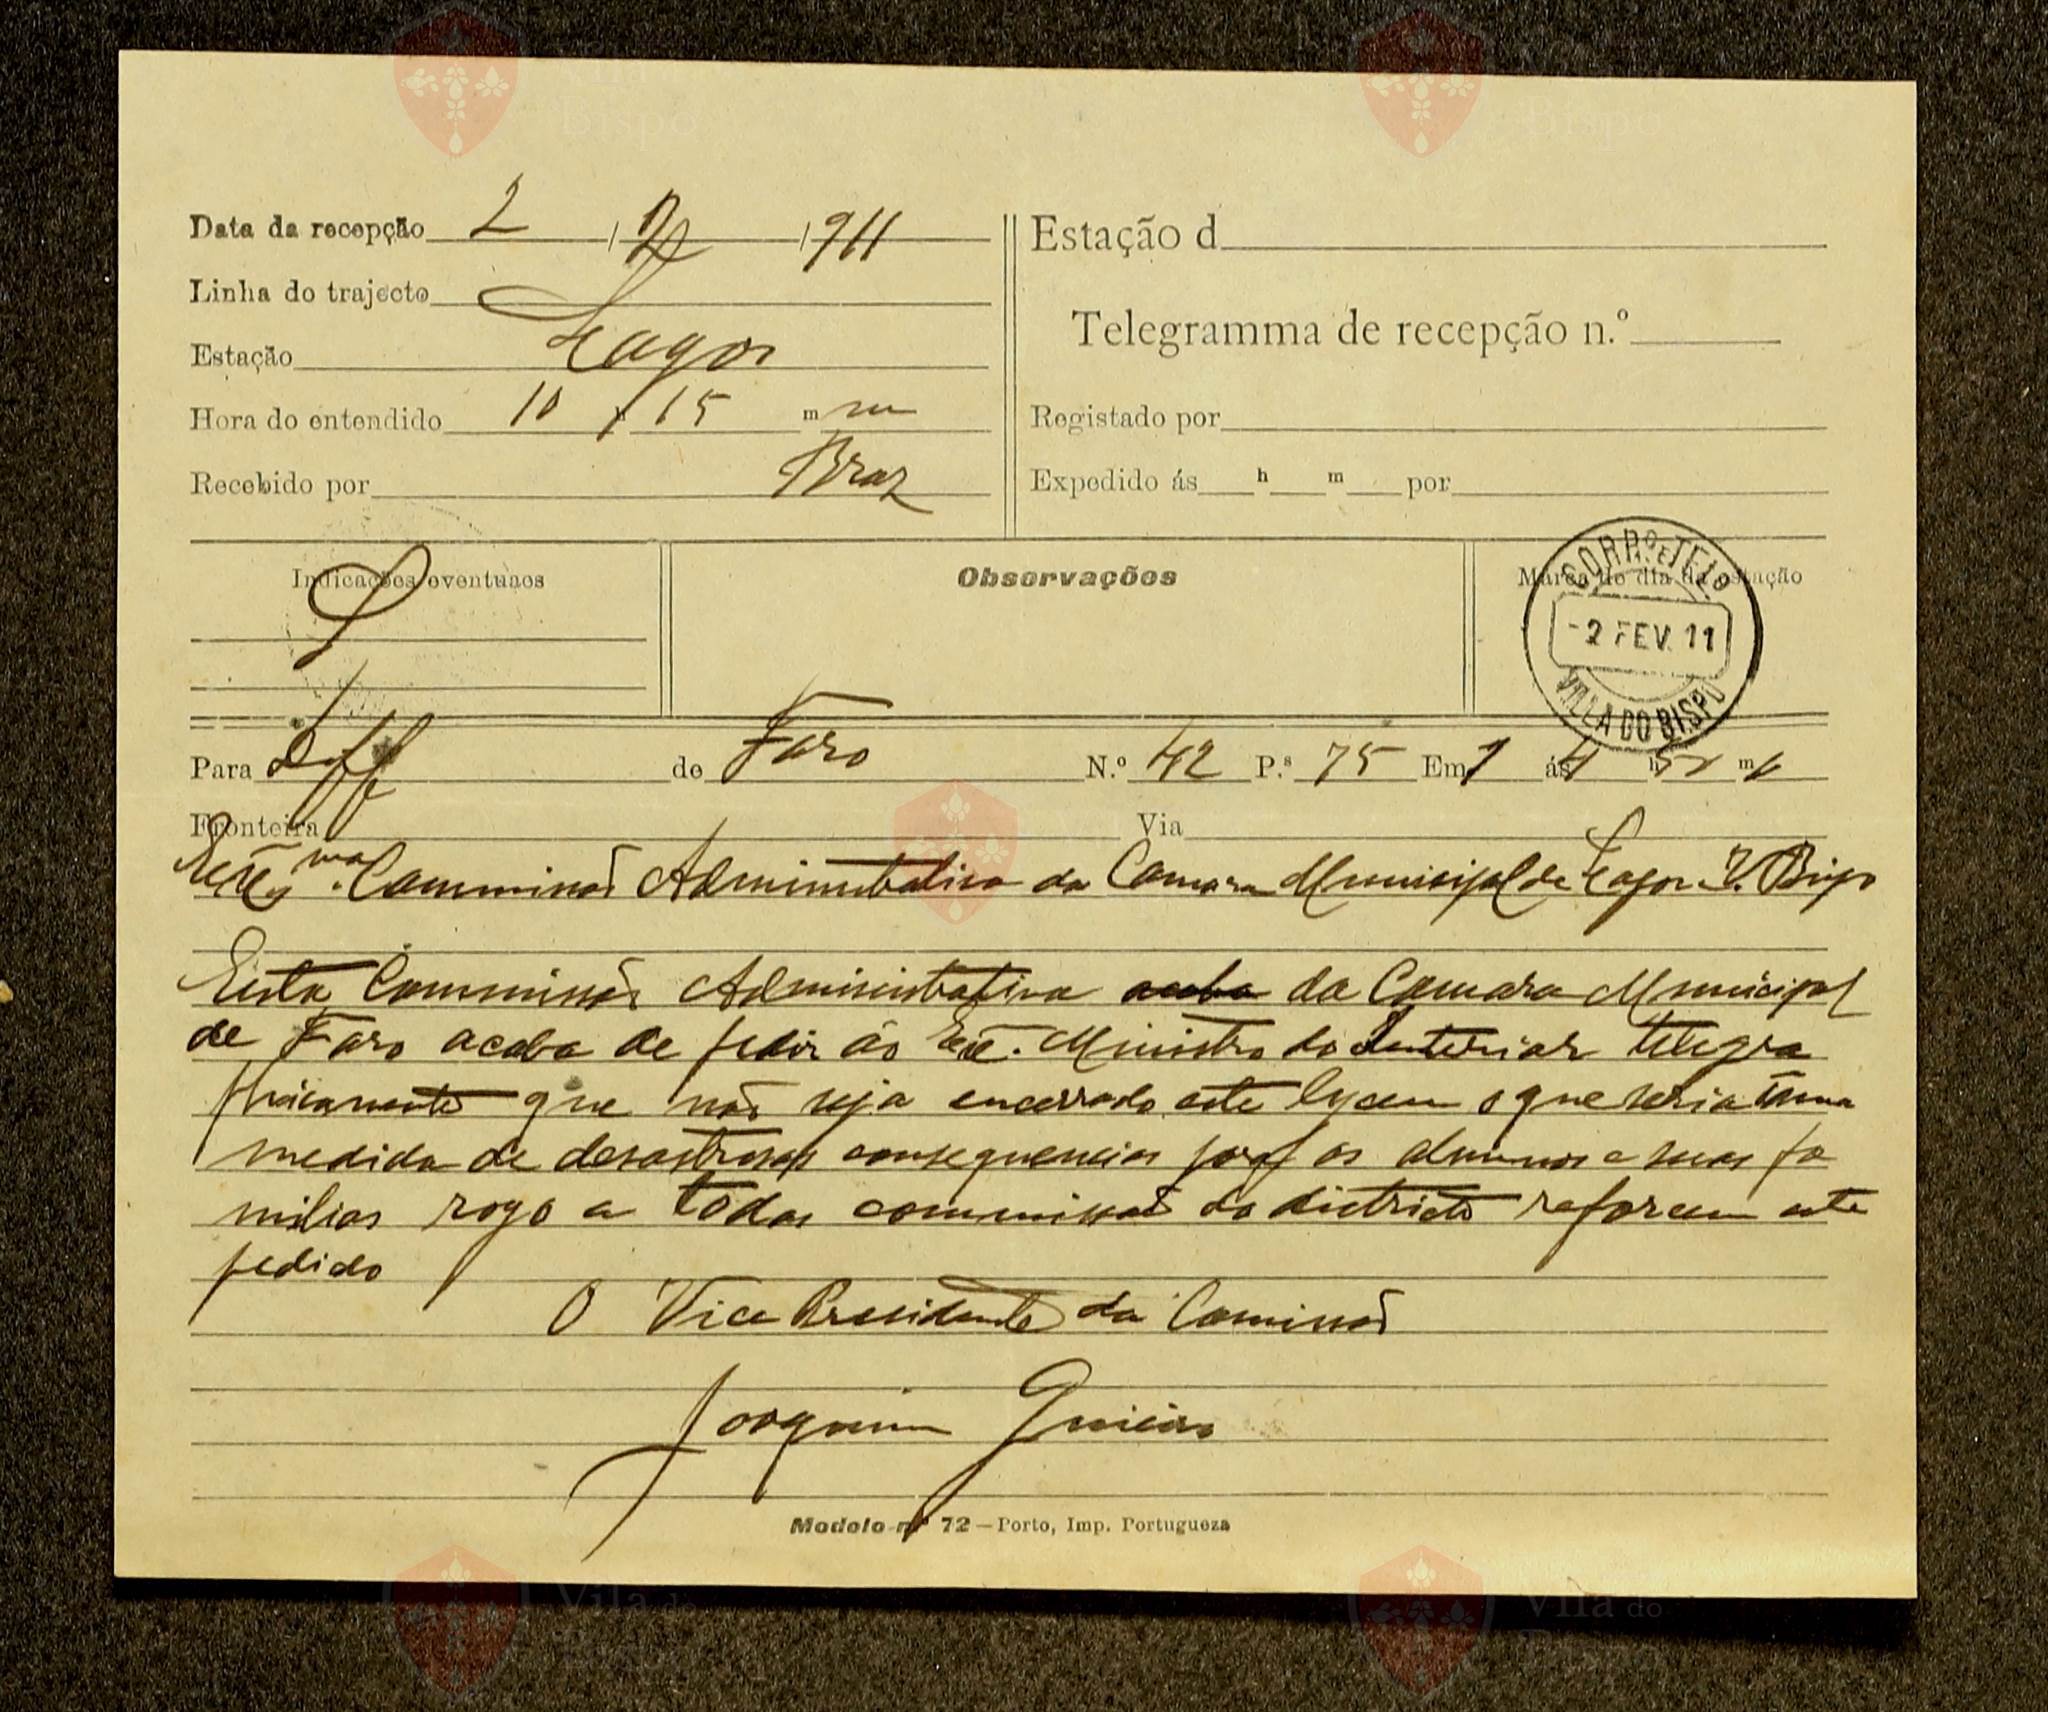 Vila do
Bispo
Bispo
Data da recepção 2 / / 911
Linha do trajecto
Estação Lagos
Hora do entendido 10 h 15 m m
Recebido por Braz
Estação d
Telegramma de recepção n.º
Registado por
Expedido ás h m por
Indicações eventuaes
Observações
Marca do dia da estação
CORR.OS E TEL.
-2 FEV. 11
VILLA DO BISPO
Para de Faro N.º 42 P.s 75 Em 1 ás 4 h m
Fronteira Via
Commissão Administrativa da Camara Municipal de Lagos V. Bispo
Esta Commissão Administrativa acaba da Camara Municipal
de Faro acaba de pedir ao Exc. Ministro do Interior telegra
phicamente que não seja encerrado este lyceu o que seria uma
medida de desastrosas consequencias para os alumnos e suas fa
milias rogo a todas commissões do districto reforcem este
pedido
O Vice Presidente da Comissão
Joaquim
Modelo n.º 72 — Porto, Imp. Portugueza
Vila do
Vila do
Bispo